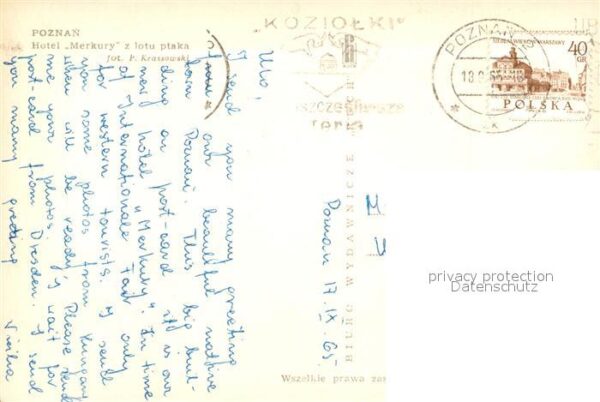 POZNAŃ
Hotel „Merkury" z lotu ptaka
fot. P. Krassowski
KOZIOŁKI
POZNAŃ
18.9.65
40
GR
POLSKA
Uwo,
I send you many greeting
from our beautiful native
town Poznań. This big buil-
ding on post-card it is our
new hotel "Merkury". In time
of Internationale Fair only
for western tourists. I send
you some photos from Hungary
when will be ready. Please send
me your photos. I wait for
post-card from Dresden. I send
you many greeting
Poznań 17.IX.65.
BIURO WYDAWNICZE RUCH
Wszelkie prawa zas
privacy protection
Datenschutz